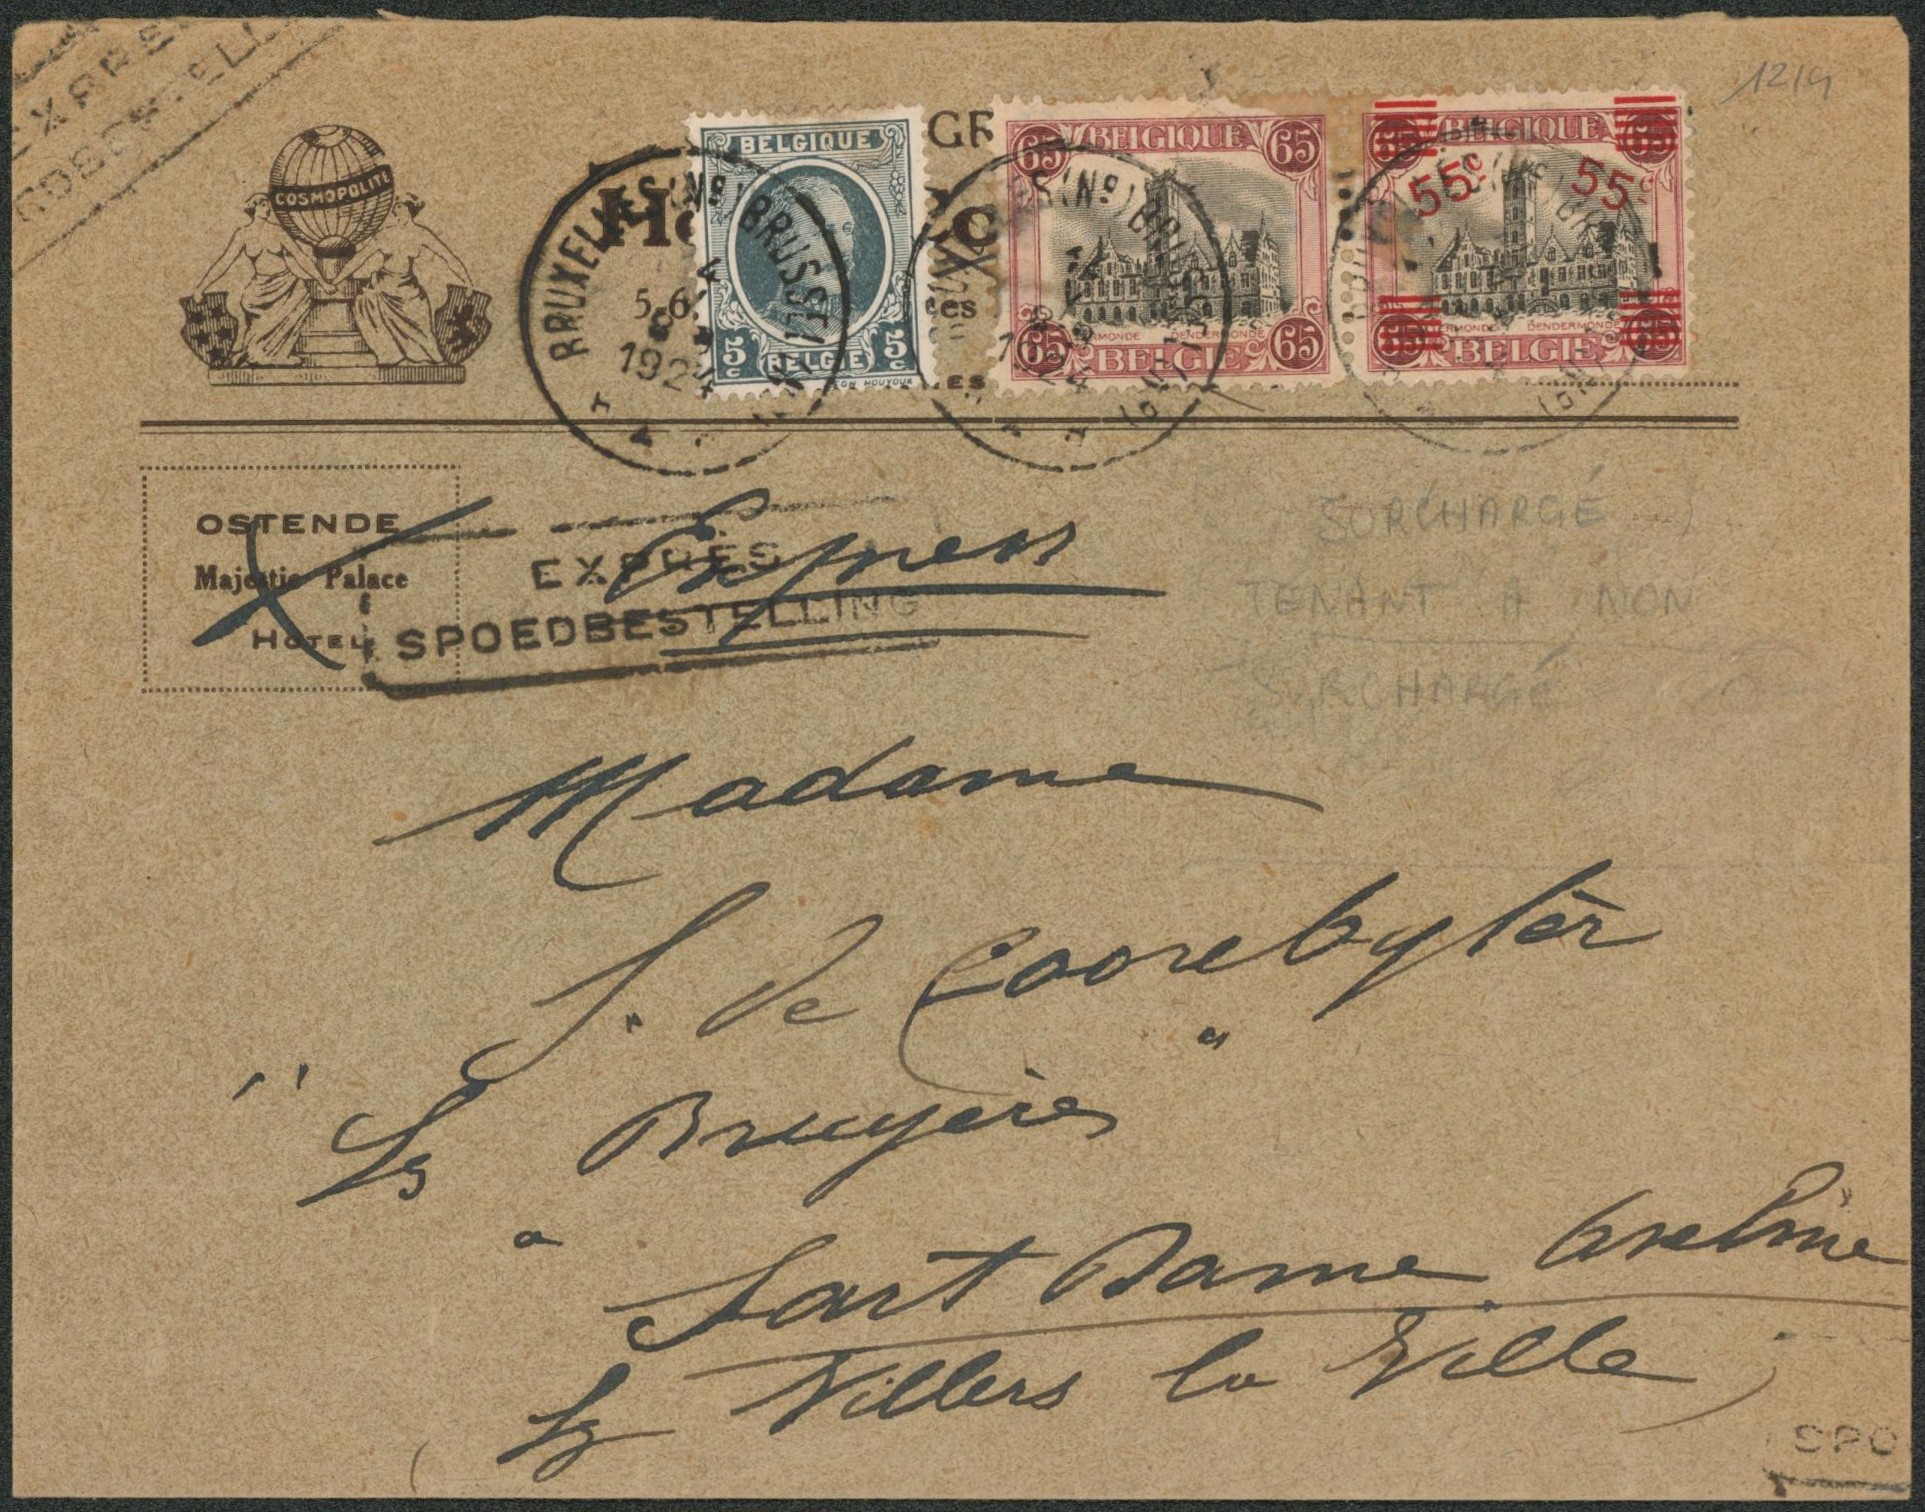 EXPRÈS
SPOEDBESTELLING
1219
COSMOPOLITE
BELGIQUE
5c 5c
BELGIE
65 BELGIQUE 65
TERMONDE DENDERMONDE
65 BELGIE 65
65 BELGIQUE 65
55c 55c
TERMONDE DENDERMONDE
65 BELGIE 65
BRUXELLES (No) BRUSSEL
5-6
1924
OSTENDE
Majestic Palace
HOTEL
Express
EXPRÈS
SPOEDBESTELLING
SURCHARGÉ
TENANT A NON
SURCHARGÉ
Madame
S. de Coorebytèr
"Les Bruyères"
a Sart Dame Aveline
Villers la Ville
SPO